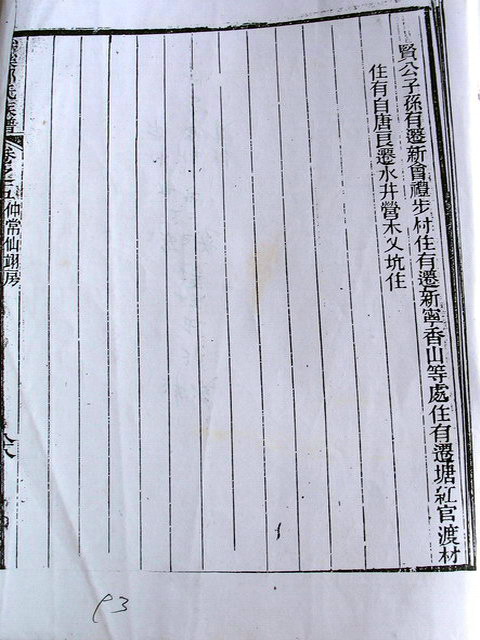 賢公子孫有遷新會禮步村住有遷新寧香山等處住有遷塘紅官渡材
住有自唐良遷水井營木乂坑住
氏族譜 卷之五 仲常仙翊房 六八
93